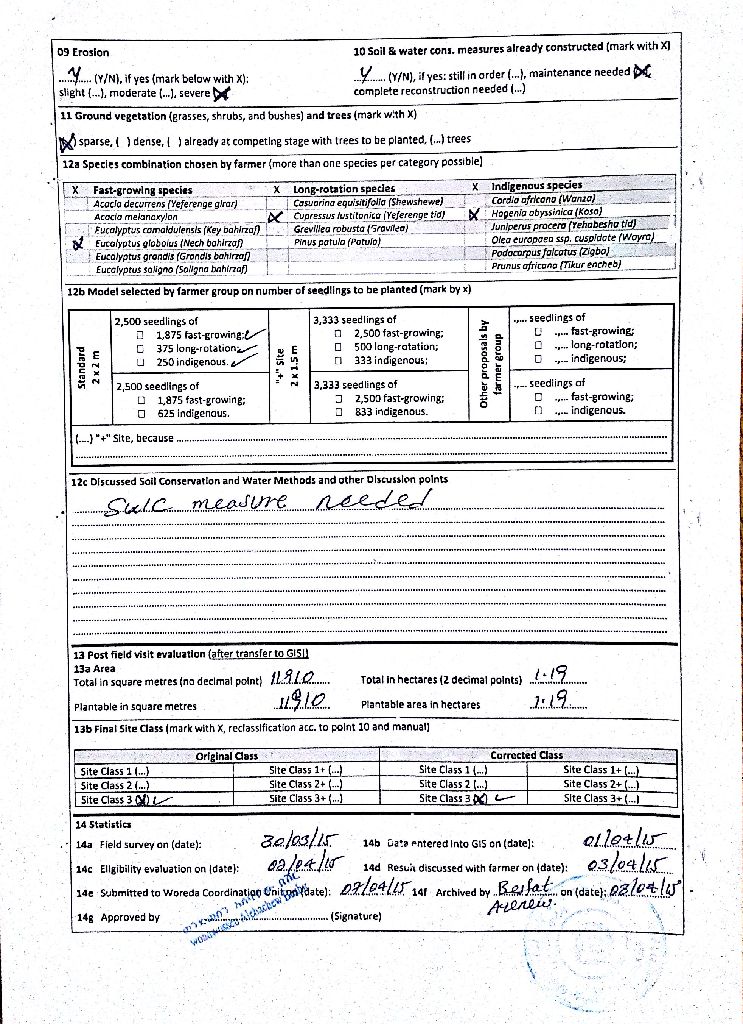 09 Erosion
10 Soil & water cons. measures already constructed (mark with X)
...Y... (Y/N), if yes (mark below with X):
slight (...), moderate (...), severe (X)
...Y... (Y/N), if yes: still in order (...), maintenance needed (X)
complete reconstruction needed (...)
11 Ground vegetation (grasses, shrubs, and bushes) and trees (mark with X)
(X) sparse, ( ) dense, ( ) already at competing stage with trees to be planted, (...) trees
12a Species combination chosen by farmer (more than one species per category possible)
X Fast-growing species X Long-rotation species X Indigenous species
Acacia decurrens (Yeferenge girar) Casuarina equisitifolia (Shewshewe) Cordia africana (Wanza)
Acacia melanoxylon X Cupressus lustitanica (Yeferenge tid) X Hagenia abyssinica (Koso)
Eucalyptus camaldulensis (Key bahirzaf) Grevillea robusta (Gravilea) Juniperus procera (Yehabesha tid)
X Eucalyptus globolus (Nech bahirzaf) Pinus patula (Patula) Olea europaea ssp. cuspidate (Wayra)
Eucalyptus grandis (Grandis bahirzaf) Podocarpus falcatus (Zigba)
Eucalyptus saligna (Saligna bahirzaf) Prunus africana (Tikur encheb)
12b Model selected by farmer group on number of seedlings to be planted (mark by x)
Standard
2 x 2 m
2,500 seedlings of
☐ 1,875 fast-growing; ✓
☐ 375 long-rotation; ✓
☐ 250 indigenous. ✓
2,500 seedlings of
☐ 1,875 fast-growing;
☐ 625 indigenous.
"+" Site
2 x 1.5 m
3,333 seedlings of
☐ 2,500 fast-growing;
☐ 500 long-rotation;
☐ 333 indigenous;
3,333 seedlings of
☐ 2,500 fast-growing;
☐ 833 indigenous.
Other proposals by
farmer group
.,... seedlings of
☐ .,... fast-growing;
☐ .,... long-rotation;
☐ .,... indigenous;
.,... seedlings of
☐ .,... fast-growing;
☐ .,... indigenous.
(....) "+" Site, because
12c Discussed Soil Conservation and Water Methods and other Discussion points
SWC measure needed
13 Post field visit evaluation (after transfer to GIS!)
13a Area
Total in square metres (no decimal point) 11910 Total in hectares (2 decimal points) 1.19
Plantable in square metres 11910 Plantable area in hectares 1.19
13b Final Site Class (mark with X, reclassification acc. to point 10 and manual)
Original Class Corrected Class
Site Class 1 (...) Site Class 1+ (...) Site Class 1 (...) Site Class 1+ (...)
Site Class 2 (...) Site Class 2+ (...) Site Class 2 (...) Site Class 2+ (...)
Site Class 3 (X) ✓ Site Class 3+ (...) Site Class 3 (X) ✓ Site Class 3+ (...)
14 Statistics
14a Field survey on (date): 30/03/15 14b Data entered into GIS on (date): 01/04/15
14c Eligibility evaluation on (date): 02/04/15 14d Result discussed with farmer on (date): 03/04/15
14e Submitted to Woreda Coordination Unit on (date): 07/04/15 14f Archived by on (date): 08/04/15
14g Approved by (Signature)